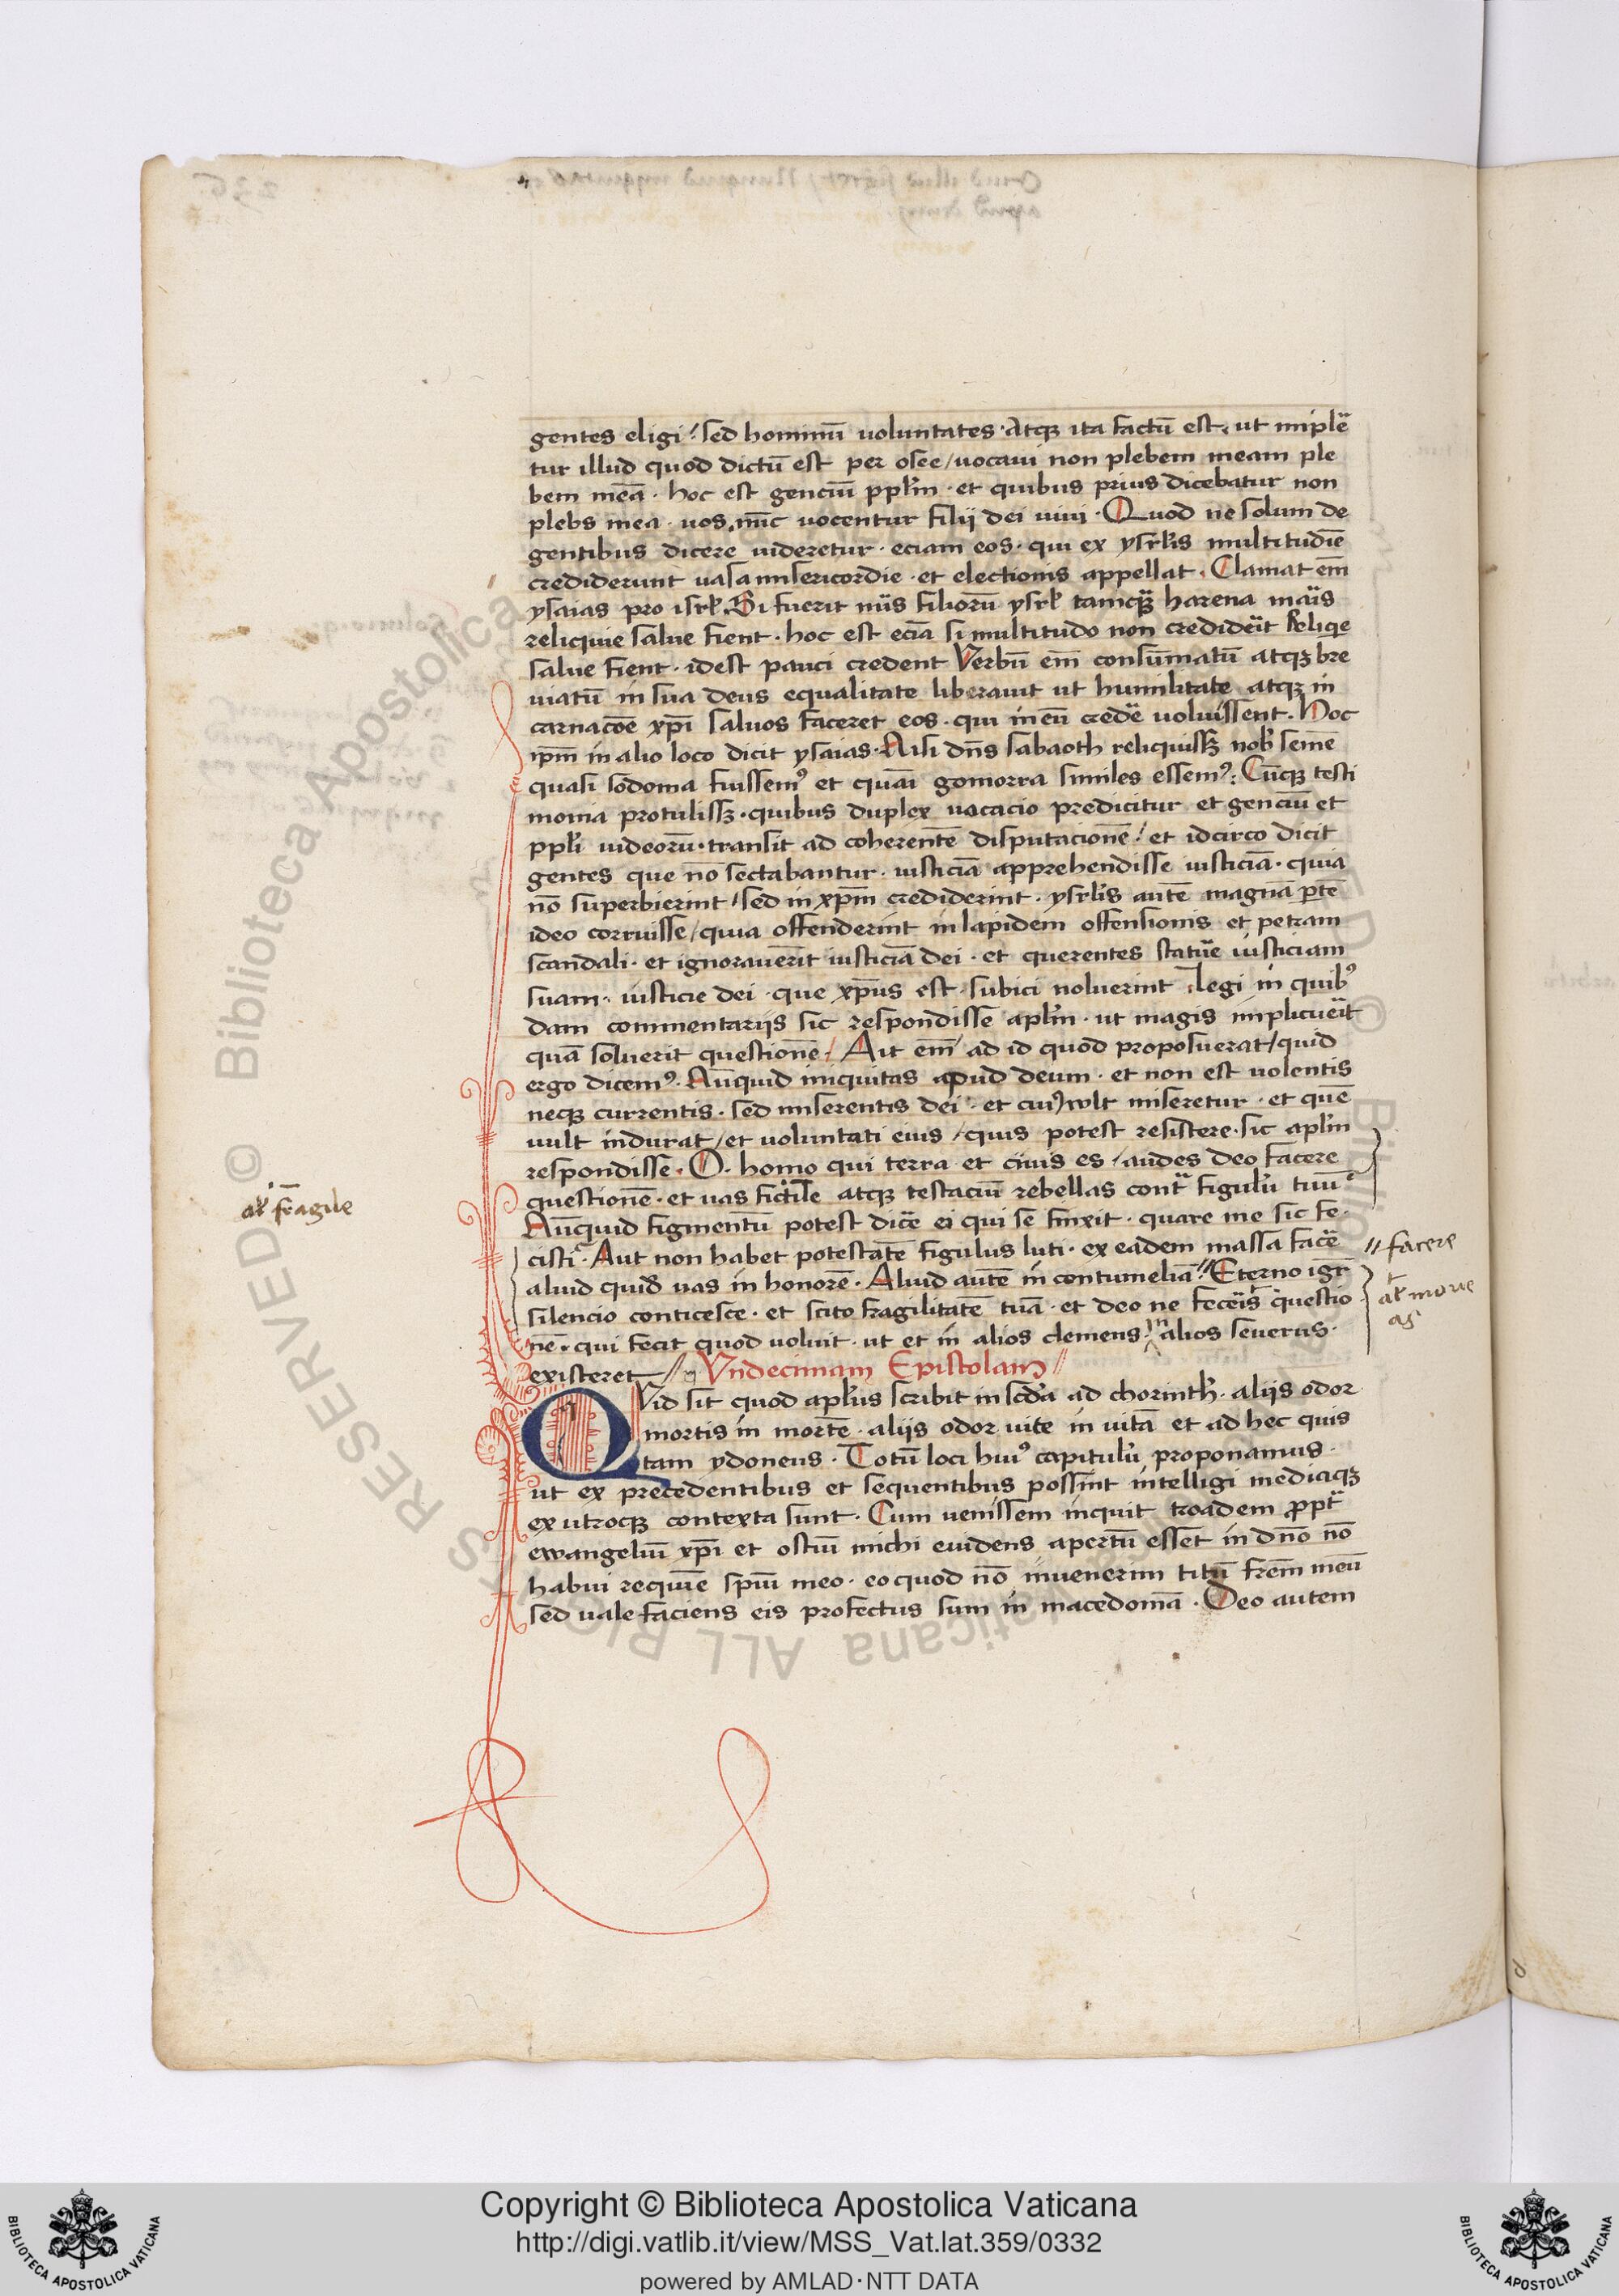 gentes eligi / sed hominū uoluntates · Atqꝫ ita factū est · ut implē
tur illud quod dictū est per osee / uocaui non plebem meam ple
bem meā · hoc est genciū ppl̄m · et quibus prius dicebatur non
plebs mea · uos · nūc uocentur filij dei uiui · Quod ne solum de
gentibus dicere uideretur · eciam eos · qui ex ysrl̄is multitudīe
crediderunt uasa misericordie · et electionis appellat · Clamat em̄
ysaias pro isrl̄ · Si fuerit nūs filiorū ysrl̄ tamqꝫ harena maīs
reliquie salue fient · hoc est eciā si multitudo non credid̄it Reliqe
salue fient · idest pauci credent Verbū em̄ consūmatū atqꝫ bre
uiatū in sua deus equalitate liberauit ut humilitate atqꝫ in
carnacōe xp̄i saluos faceret eos · qui in eū cred̄e uoluissent · Hoc
ip̄m in alio loco dicit ysaias · Nisi dn̄s sabaoth reliquissꝫ nob̄ semē
quasi sodoma fuissemꝰ et quāi gomorra similes essemꝰ : Cūqꝫ testi
monia protulissꝫ · quibus duplex uocacio predicitur et genciū et
ppl̄i iudeorū · transit ad coherentē disputacionē / et idcirco dicit
gentes que nō sectabantur · iusticiā apprehendisse iusticiā · quia
nō superbierint / sed in xp̄m crediderint · ysrl̄is autē magnā ptē
ideo corruisse / quia offenderint in lapidem offensionis et petram
scandali · et ignorauerīt iusticiā dei · et querentes statūe iusticiam
suam · iusticie dei · que xp̄us est · subici noluerint Legi in quibꝰ
dam commentarijs sic respondisse apl̄m · ut magis implicūeit
quā soluerit questionē / Ait em̄ ad id quod proposuerat / quid
ergo dicemꝰ · Nūquid iniquitas apud deum · et non est uolentis
neqꝫ currentis · sed miserentis dei · et cuiꝰ wlt miseretur · et quē
uult indurat / et uoluntati eius / quis potest resistere · sic apl̄m
respondisse · O · homo qui terra et cinis es / audes deo facere
questionē · et uas fictile atqꝫ testaciū rebellas contᵃ figulū tuū
Nūquid figmentū potest dic̄e ei qui se finxit · quare me sic fe ·
cisti · Aut non habet potestatē figulus luti · ex eadem massa fac̄e
aliud quid̄ uas in honorē · Aliud autē in contumeliā // Eterno igr̄
silencio conticesce · et scito fragilitatē tuā · et deo ne feceīs questio
nē · qui fecit quod uoluit · ut et in alios clemens · in alios seuerus ·
existeret // Vndecimam Epistolam //
QVid sit quod apl̄us scribit in scd̄a ad chorinth̄ · alijs odor
mortis in mortē · alijs odor uite in uitā et ad hec quis
tam ydoneus · Totū loci huiꝰ capitulū proponamus ·
ut ex precedentibus et sequentibus possint intelligi mediaqꝫ
ex utroqꝫ contexta sunt · Cum uenissem inquit troadem ꝓptᵉ
ewangeliū xp̄i et ostiū michi euidens apertū esset in dn̄o nō
habui requiē spīu meo · eo quod nō inuenerim titū frēm meū
sed uale faciens eis profectus sum in macedoniā · Deo autem
al̄ fragile
// facere
al̄ moue
as
Copyright © Biblioteca Apostolica Vaticana
http://digi.vatlib.it/view/MSS_Vat.lat.359/0332
powered by AMLAD·NTT DATA
BIBLIOTECA APOSTOLICA VATICANA
BIBLIOTECA APOSTOLICA VATICANA